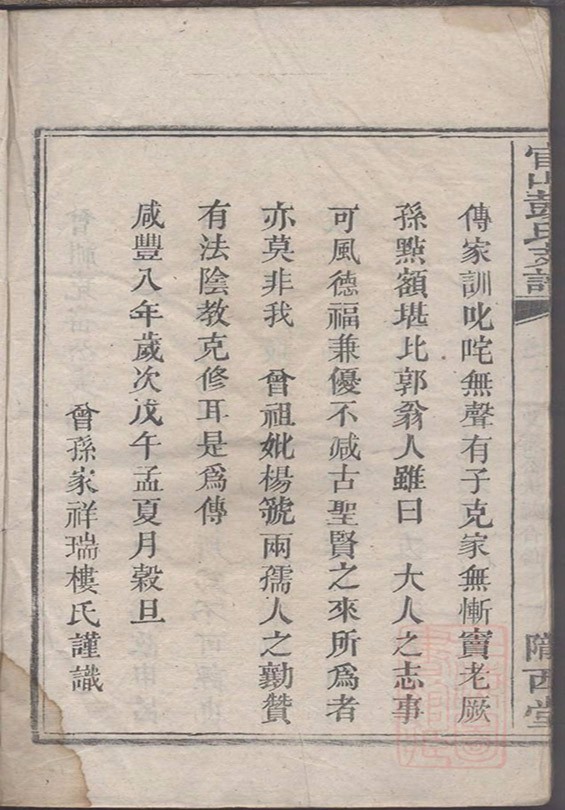 官山彭氏支譜
隴西堂
傳家訓叱咤無聲有子克家無慚竇老厥
孫點額堪比郭翁人雖曰 大人之志事
可風德福兼優不減古聖賢之來所爲者
亦莫非我 曾祖妣楊虢兩孺人之勷贊
有法陰教克修耳是爲傳
咸豐八年歲次戊午孟夏月穀旦
曾孫家祥瑞樓氏謹識